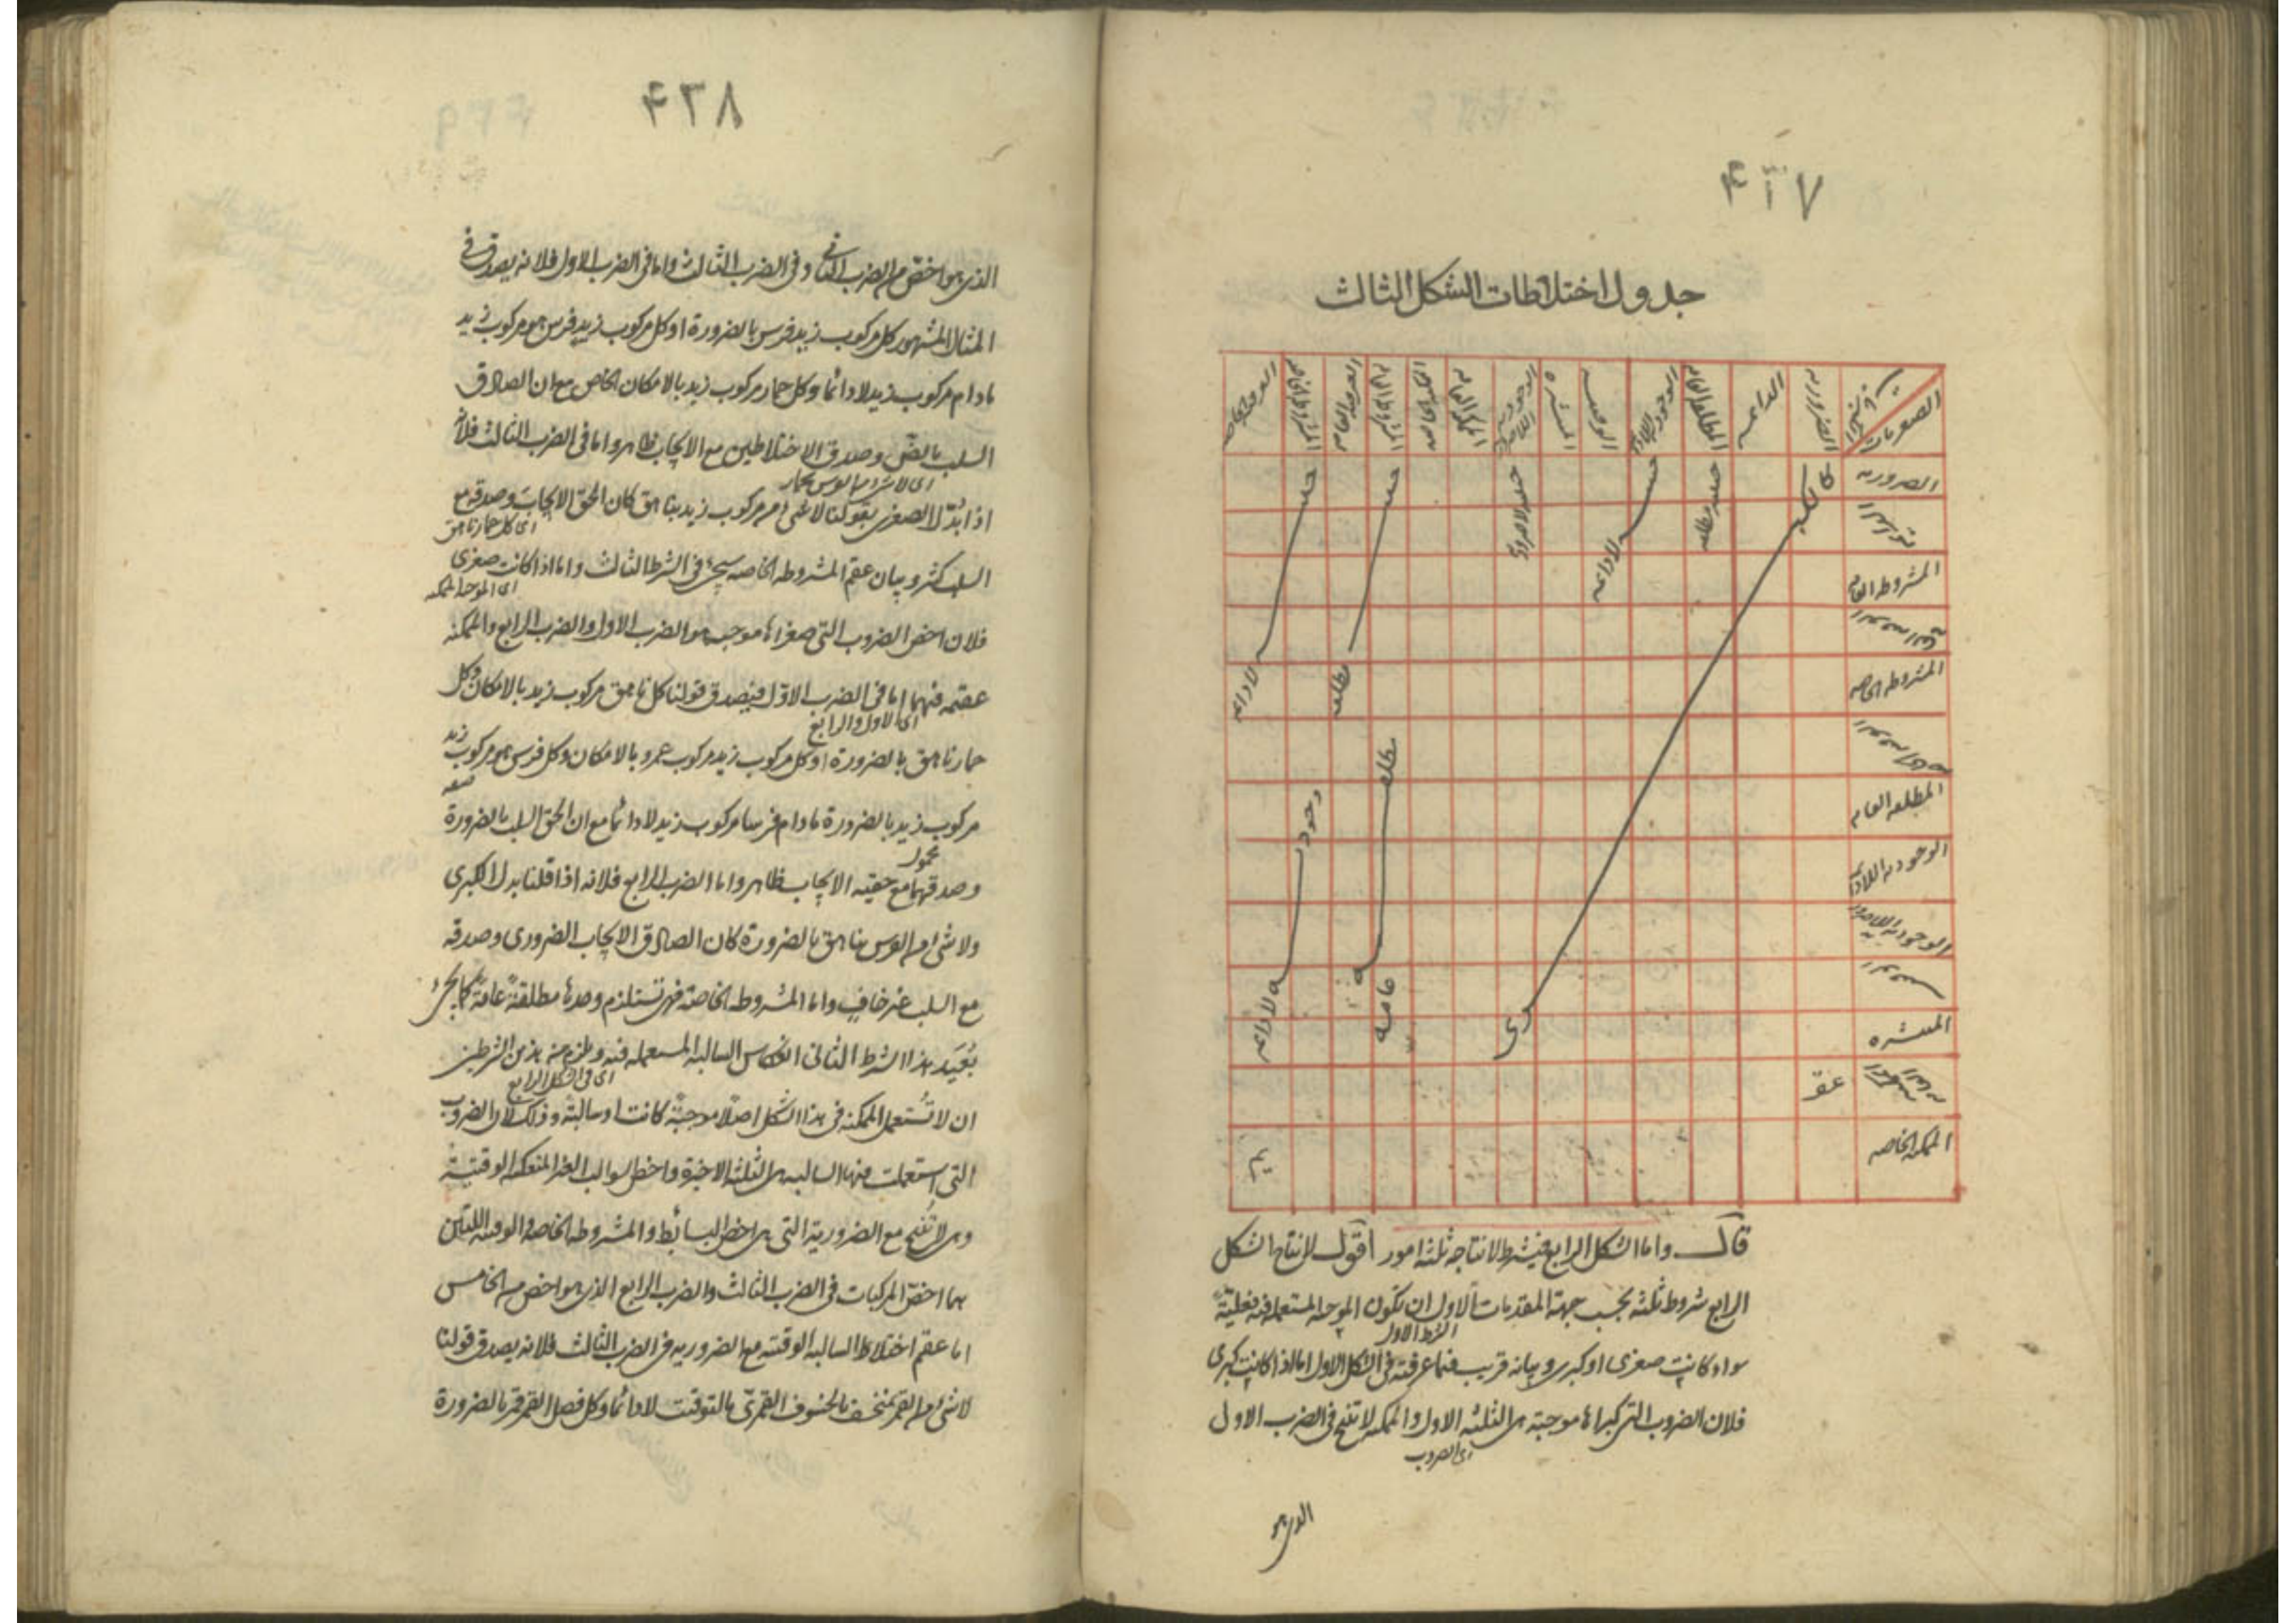 ٤٢٧
جدول اختلاطات الشكل الثالث
الصغريات
الضرورية
الدائمة
المطلقة العامة
الوجودية اللادائمة
الوقتية
المنتشرة
الوجودية اللاضرورية
الممكنة العامة
الممكنة الخاصة
العرفية العامة
العرفية الخاصة
الضرورية
المشروطة العامة
المشروطة الخاصة
المطلقة العامة
الوجودية اللادائمة
الوجودية اللاضرورية
المنتشرة
الممكنة الخاصة
كالكبرى
حينية مطلقة
حينية لادائمة
حينية لاضرورية
حينية مطلقة
حينية لادائمة
مطلقة عامة
وجودية لادائمة
قال واما الشكل الرابع فيشترط لانتاجه ثلثة امور اقول لانتاج الشكل
الرابع شروط ثلثة بحسب جهة المقدمات الاول ان تكون الموجبة المستعملة فيه فعلية
الشرط الاول
سواء كانت صغرى او كبرى وبيانه قريب مما عرفته في الشكل الاول اما اذا كانت كبرى
فلان الضروب التي كبراها موجبة هي الثلثة الاول والممكنة لا تنتج في الضرب الاول
اى الضروب
الذي هو
٤٢٨
الذي هو اخص من الضرب الثاني وفي الضرب الثالث واما في الضرب الاول فلانه يصدق في
المثال المشهور كل مركوب زيد فرس بالضرورة او كل مركوب زيد فرس هو مركوب زيد
مادام مركوب زيد لادائما وكل حمار مركوب زيد بالامكان الخاص مع ان الصادق
السلب بالض وصدق الاختلاطين مع الايجاب ظاهر واما في الضرب الثالث فلانه
اى لا شئ من الفرس بحمار
اذا بدّل الصغرى بقولنا لا شئ من مركوب زيد بناهق كان الحق الايجاب وصدقه مع
اى كل حمار ناهق
السلب كثير وبيان عقم المشروطة الخاصة سيجئ في الشرط الثالث واما اذا كانت صغرى
اى الموجبة الممكنة
فلان اخص الضروب التي صغراها موجبة هو الضرب الاول والضرب الرابع والممكنة
عقيمة فيهما اما في الضرب الاول فيصدق قولنا كل ناهق مركوب زيد بالامكان وكل
اى الاول والرابع
حمار ناهق بالضرورة او كل مركوب زيد مركوب عمرو بالامكان وكل فرس هو مركوب زيد
مركوب زيد بالضرورة مادام فرسا مركوب زيد لادائما مع ان الحق السلب بالضرورة
وصدقهما مع حقيه الايجاب ظاهر واما الضرب الرابع فلانه اذا قلنا بدل الكبرى
ولا شئ من الفرس بناهق بالضرورة كان الصادق الايجاب الضروري وصدقه
مع السلب غير خاف واما المشروطة الخاصة فهي تستلزم وحدها مطلقة عامة كما يجئ
بُعَيد هذا الشرط الثاني انعكاس السالبة المستعملة فيه ويلزم من هذين الشرطين
اى في الشكل الرابع
ان لا تُستعمل الممكنة في هذا الشكل اصلا موجبة كانت او سالبة وذلك لان الضروب
التي استعملت فيها السالبة هي الثلثة الاخيرة واخص السوالب الغير المنعكسة الوقتية
وهي لا تُنتج مع الضرورية التي هي اخص البسائط والمشروطة الخاصة والوقتية اللتين
هما اخصّ المركبات في الضرب الثالث والضرب الرابع الذي هو اخص من الخامس
اما عقم اختلاط السالبة الوقتية مع الضرورية في الضرب الثالث فلانه يصدق قولنا
لا شئ من القمر بمنخسف بالخسوف القمرى بالتوقيت لادائما وكل فصل القمر قمر بالضرورة